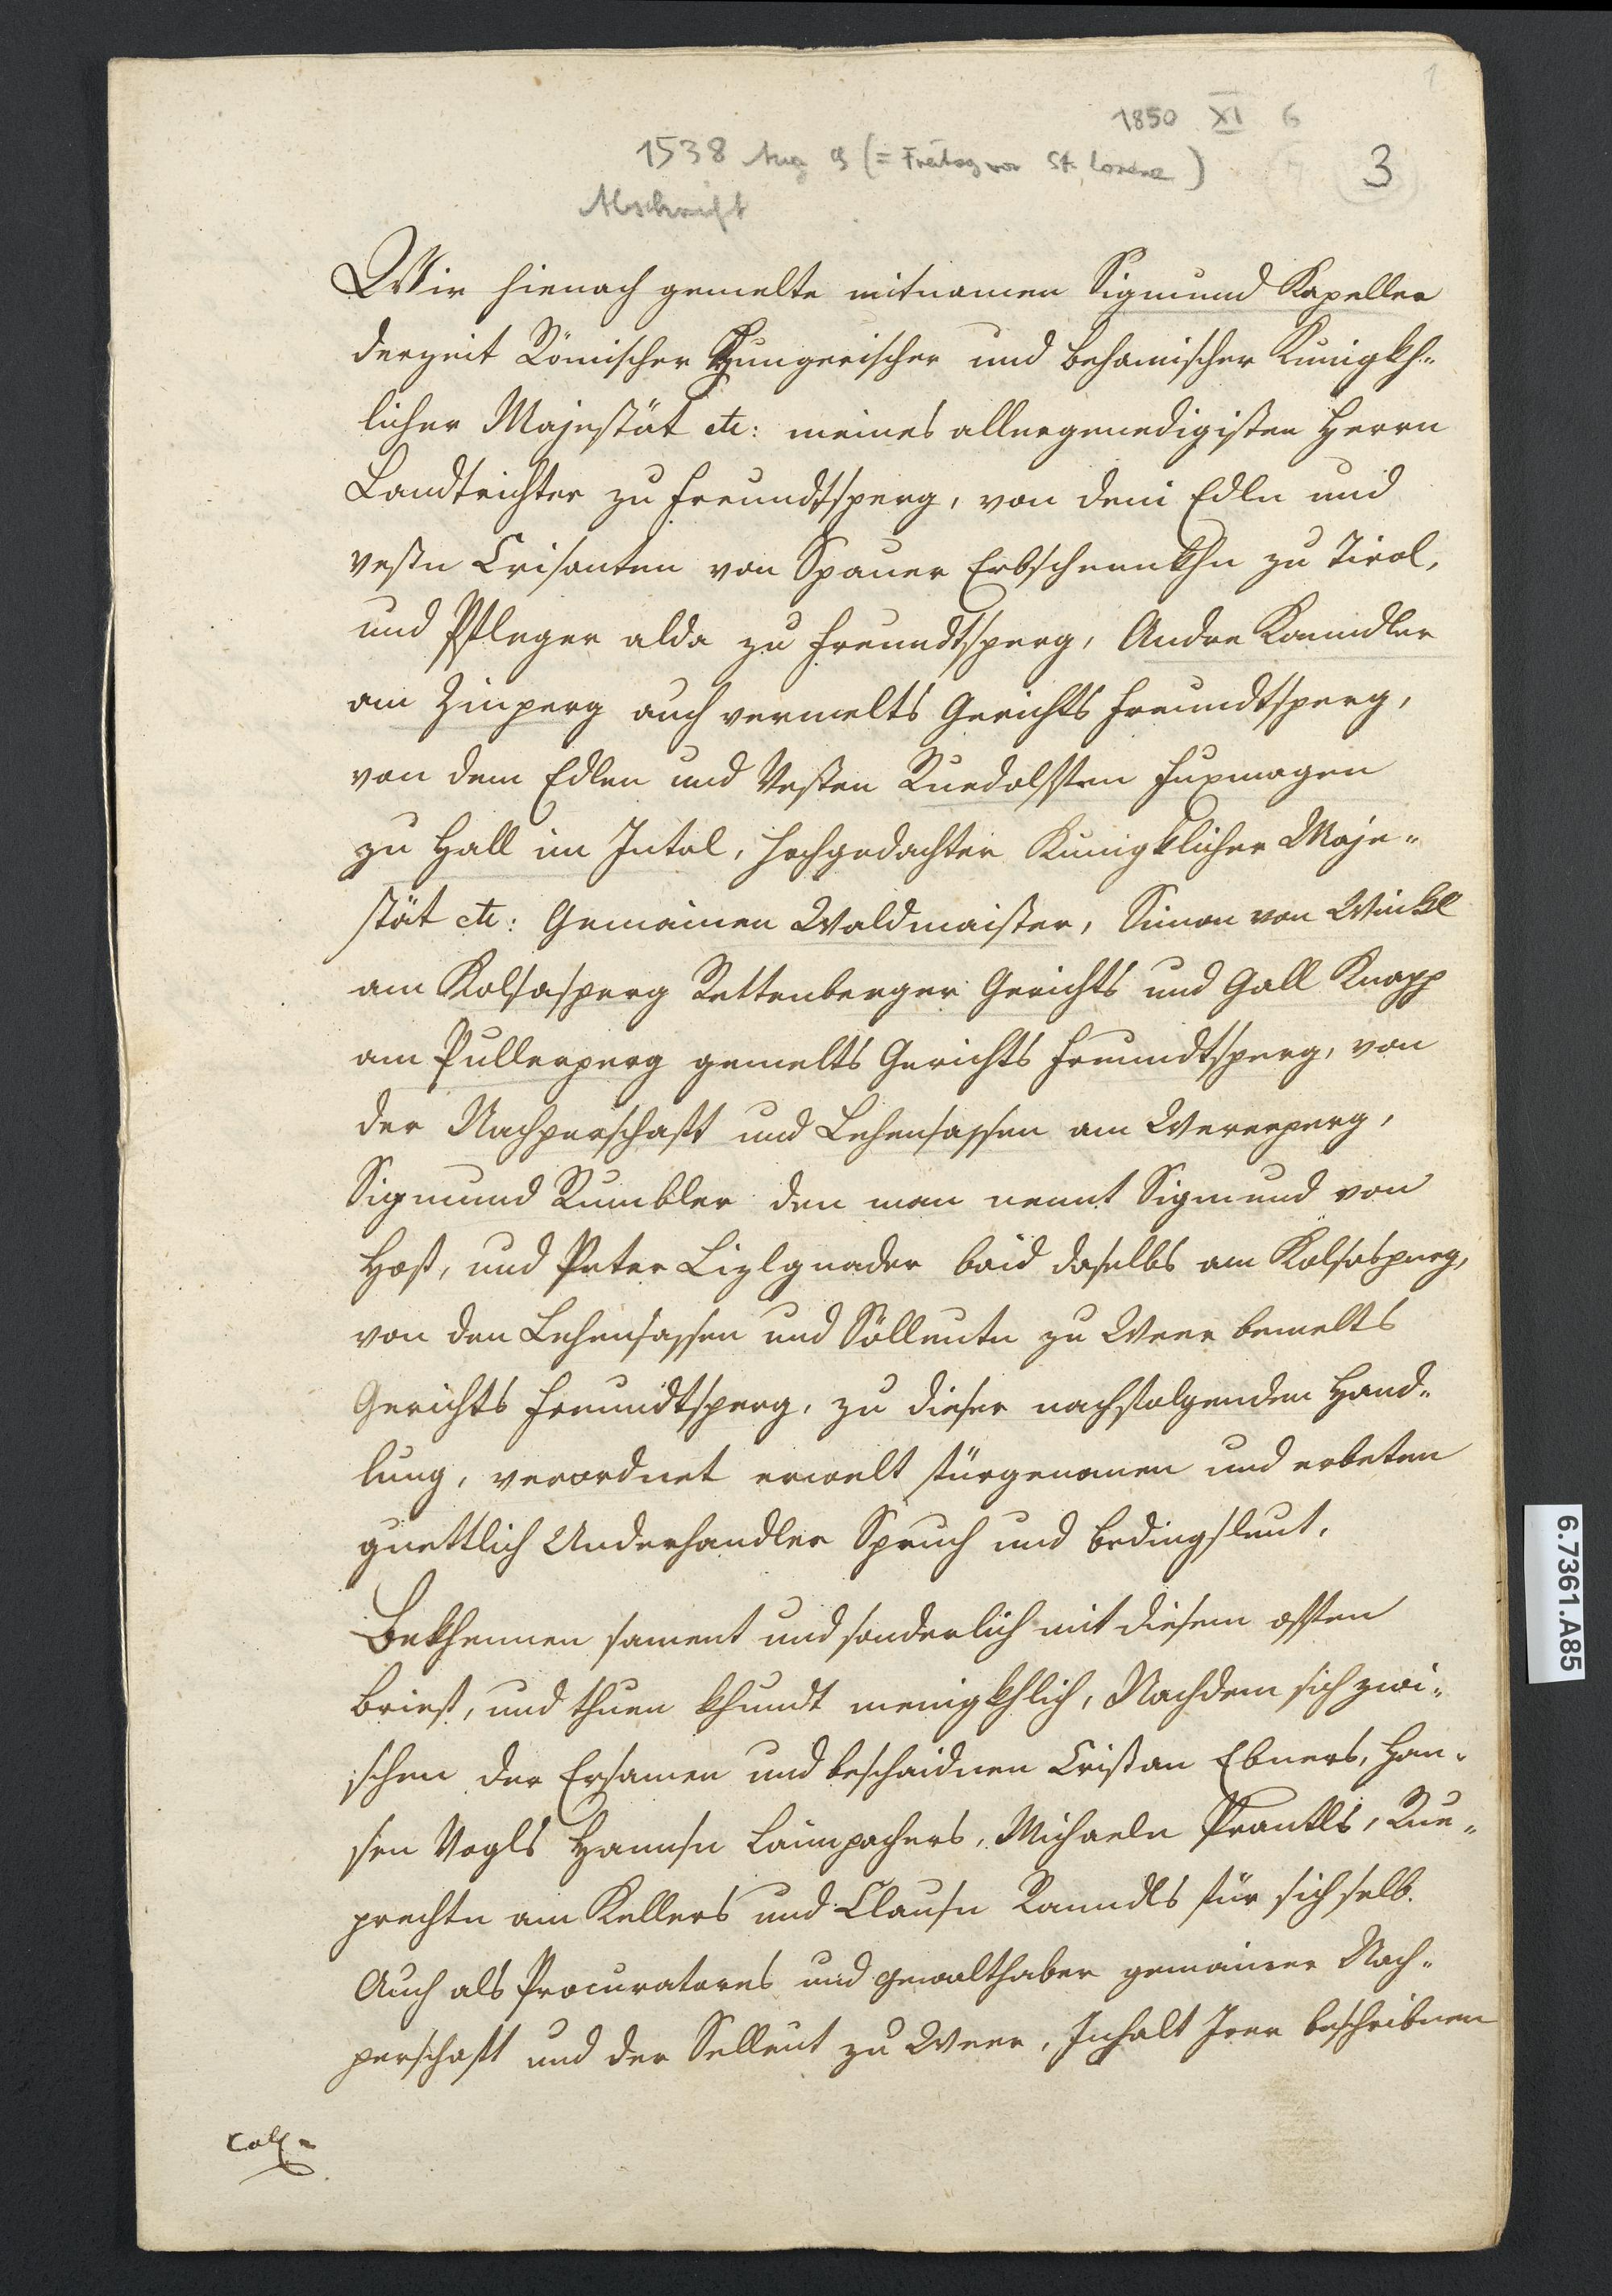 1
1850 XI 6
1538 Aug 9 (= Freitag vor St. Lorenz)
3
Abschrift
Wir hienach gemelte mitnamen Sigmund Kapeller
derzeit Römischer Hungerischer und behamischer Kunigkh-
licher Majestät etc: meines allergenedigisten Herrn
Landtrichter zu Freundtsperg, von dem Edln und
vestn Crisanten von Spauer Erbschennkhn zu Tirol,
und Pfleger alda zu Freundtsperg, Andre Kanndler
am Zinperg auch vermelts Gerichts Freundtsperg,
von dem Edlen und Vesten Ruedolffen Fuxmagen
zu Hall im Intal, hochgedachter Kunigklicher Maje-
stät etc: Gemainen Waldmaister, Simon von Winkl
am Kolsasperg Rettenberger Gerichts und Gall Knapp
am Pullerperg gemelts Gerichts Freundtsperg, von
der Nachperschafft und Lehensassen am Wererperg,
Sigmund Rumbler den man nennt Sigmund von
Hof, und Peter Lizlgnader baid daselbs am Kolsasperg,
von den Lehensassen und Söllleute zu Weer bemelts
Gerichts Freundtsperg, zu dieser nachfolgenden Hand-
lung, verordnet erwelt fürgenomen und erbeten
guettlich Underhandler Spruch und bedingsleut.
Bekhennen sament und sonderlich mit diesem offen
brieff, und thuen khundt menigkhlich, Nachdem sich zwi-
schen der Ersamen und beschaidnen Cristan Ebners, Han-
sen Vogls Hannsn Laimpachers, Michaeln Prantls, Rue-
prechtn am Kellers und Clausn Ranndls für sich selb.
Auch als Procuratores und gewalthaber gemainer Nach-
perschafft und der Selleut zu Weer, Inhalt Irer beschribnen
6.7361.A85